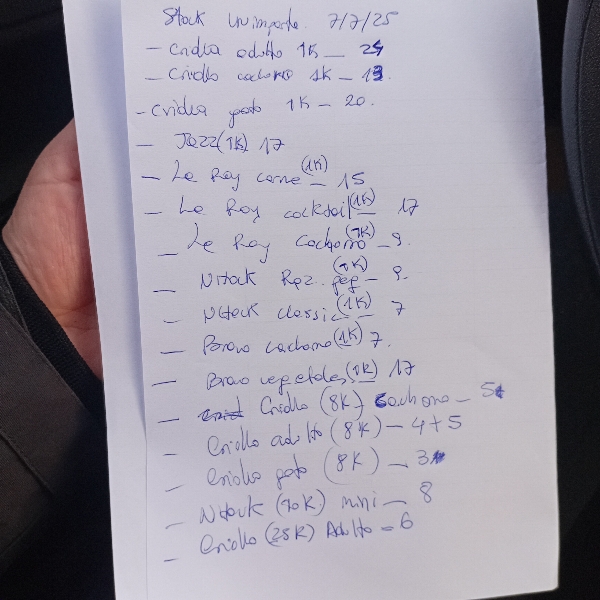 Stock 7/7/25
- Criolla adulto 1K - 24
- Criollo cachorro 1K - 13.
- Criolla gato 1K - 20.
- Jazz (1K) 17
- Le Roy carne (1K) - 15
- Le Roy cocktail (1K) - 17
- Le Roy Cachorro (1K) - 9.
- Nitock Raz. peq (1K) - 9.
- Nitock classic (1K) - 7
- Bravo cachorro (1K) 7.
- Bravo vegetales (1K) - 17
- Criollo (8K) Cachorro - 5
- Criollo adulto (8K) - 4+5
- Criollo gato (8K) - 3
- Nitock (10K) mini - 8
- Criollo (25K) Adulto - 6